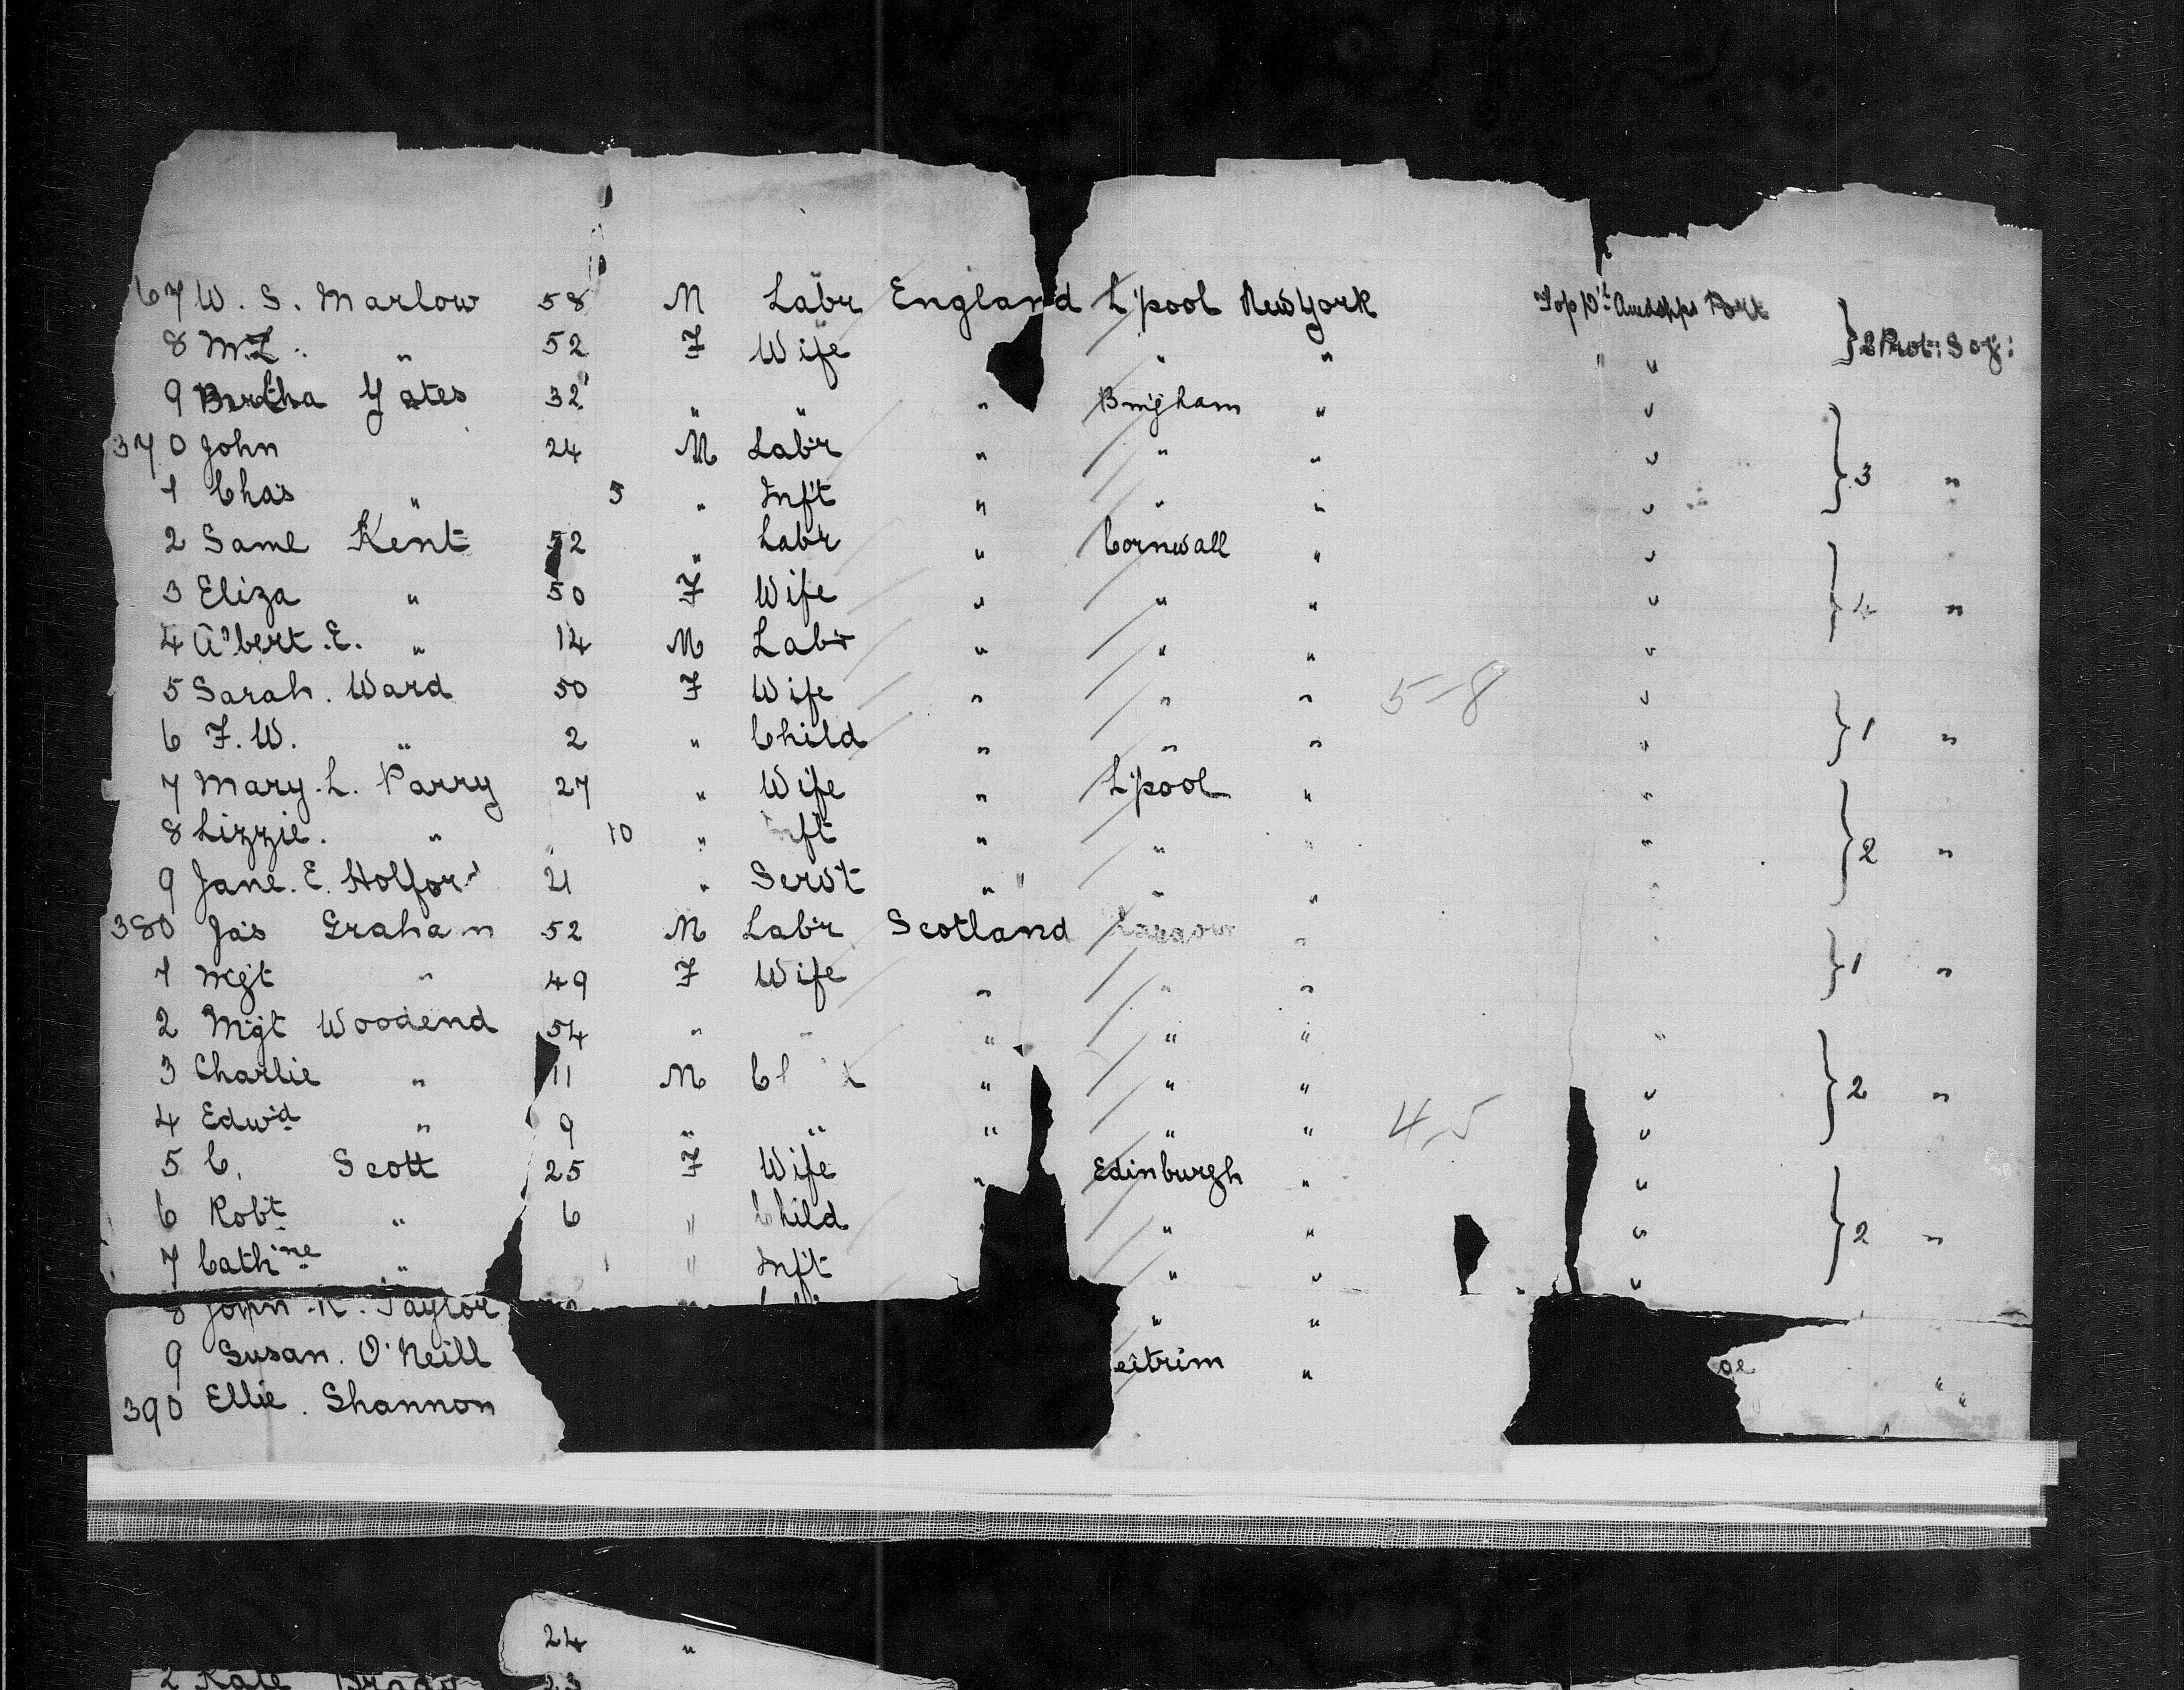 67 W. S. Marlow 58 M Labr England L'pool New York Port
8 M.L. " 52 F Wife " " " " } 2 Prot: Sog:
9 Bertha Yates 32 " " " Bm'gham " "
370 John 24 M Lab'r " " " "
1 Chas " 5 " Inf't " " " " } 3 "
2 Saml Kent 52 " Lab'r " Cornwall " "
3 Eliza " 50 F Wife " " " " } 4 "
4 Albert. E. " 14 M Labr " " " "
5 Sarah. Ward 50 F Wife " " " 5-8 "
6 F. W. " 2 " Child " " " " } 1 "
7 Mary. L. Parry 27 " Wife " L'pool " "
8 Lizzie. " 10 " ft " " " " } 2 "
9 Jane. E. Holford 21 " Serv't " " " "
380 Jas Graham 52 M Lab'r Scotland "
1 Mgt " 49 F Wife " " " } 1 "
2 Mgt Woodend 54 " " " " " "
3 Charlie " 11 M " " " " } 2 "
4 Edwd " 9 " " " " " 4,5 "
5 C. Scott 25 F Wife " Edinburgh " "
6 Robt " 6 " Child " " " } 2 "
7 Cathine " " Inft " " "
8 John Taylor " "
9 Susan. O'Neill eitrim " "
390 Ellie. Shannon "
24 "
2 Kate 23